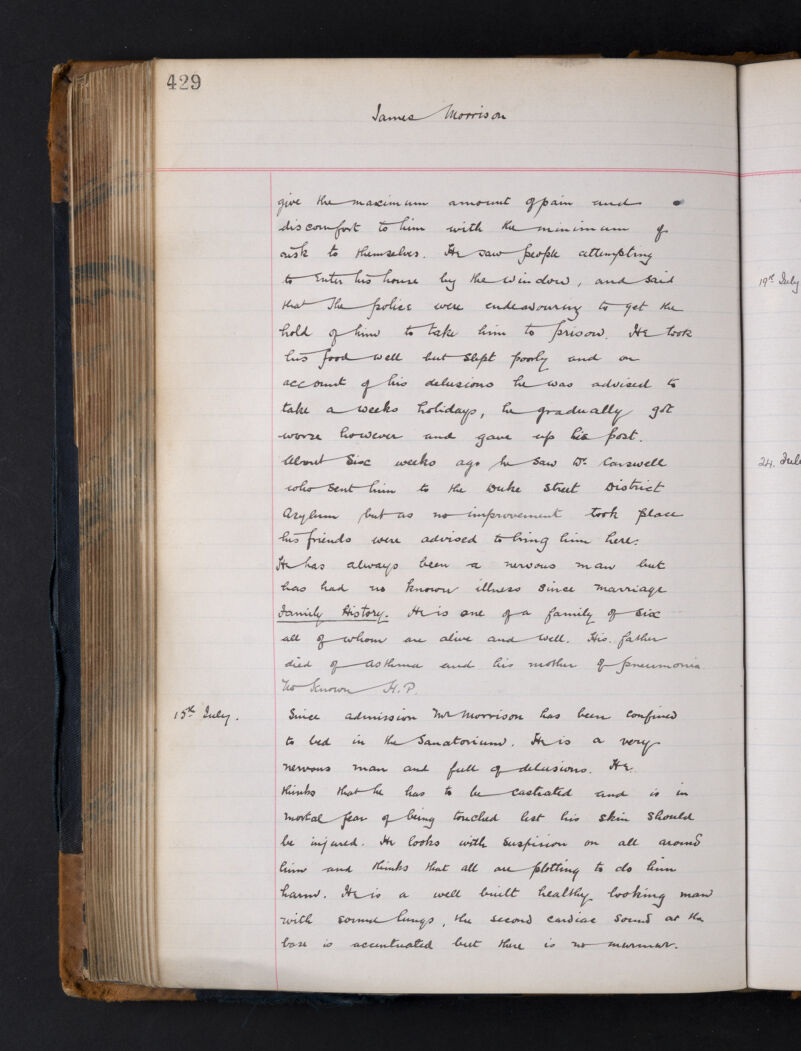 429
James Morrison
give the maximum amount of pain and
discomfort to him with the minimum of
risk to themselves. He saw people attempting
to Enter his house by the window, and said
that the police were endeavouring to get the
hold of him to take him to prison. He took
his food well but slept poorly and on
account of his delusions he was advised to
take a weeks holidays, he gradually got
worse however and gave up his post.
About Six weeks ago he saw Dr. Carswell
who sent him to the Duke Street District
Asylum but as no improvement took place
his friends were advised to bring him here.
He has always been a nervous man but
has had no known illness since marriage
Family History. He is one of a family of six
all of whom are alive and well. His father
died of asthma and his mother of pneumonia
No known H.P.
15th July.
Since admission Mr Morrison has been confined
to bed in the Sanatorium. He is a very
nervous man and full of delusions. He
thinks that he has to be castrated and is in
mortal fear of being touched lest his skin should
be injured. He looks with suspicion on all around
him and thinks that all are plotting to do him
harm. He is a well built healthy looking man
with sound lungs, the second cardiac sound at the
base is accentuated but there is no murmur.
19th July
24. Jul